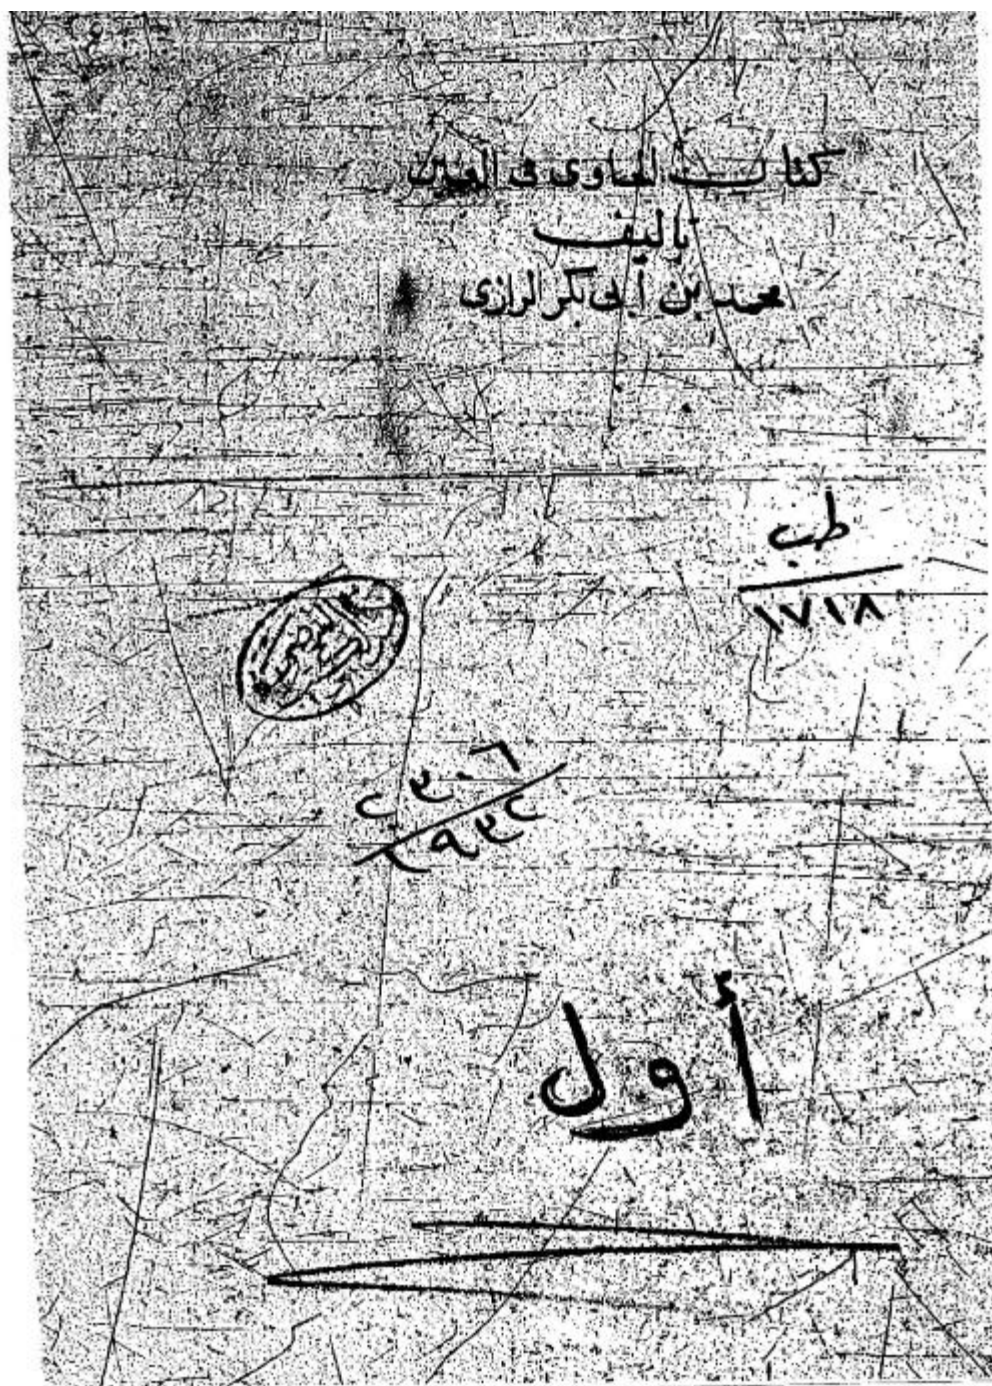 كتاب الحاوى فى العين
تأليف
محمد بن أبى بكر الرازى
طب
١٧١٨
أول